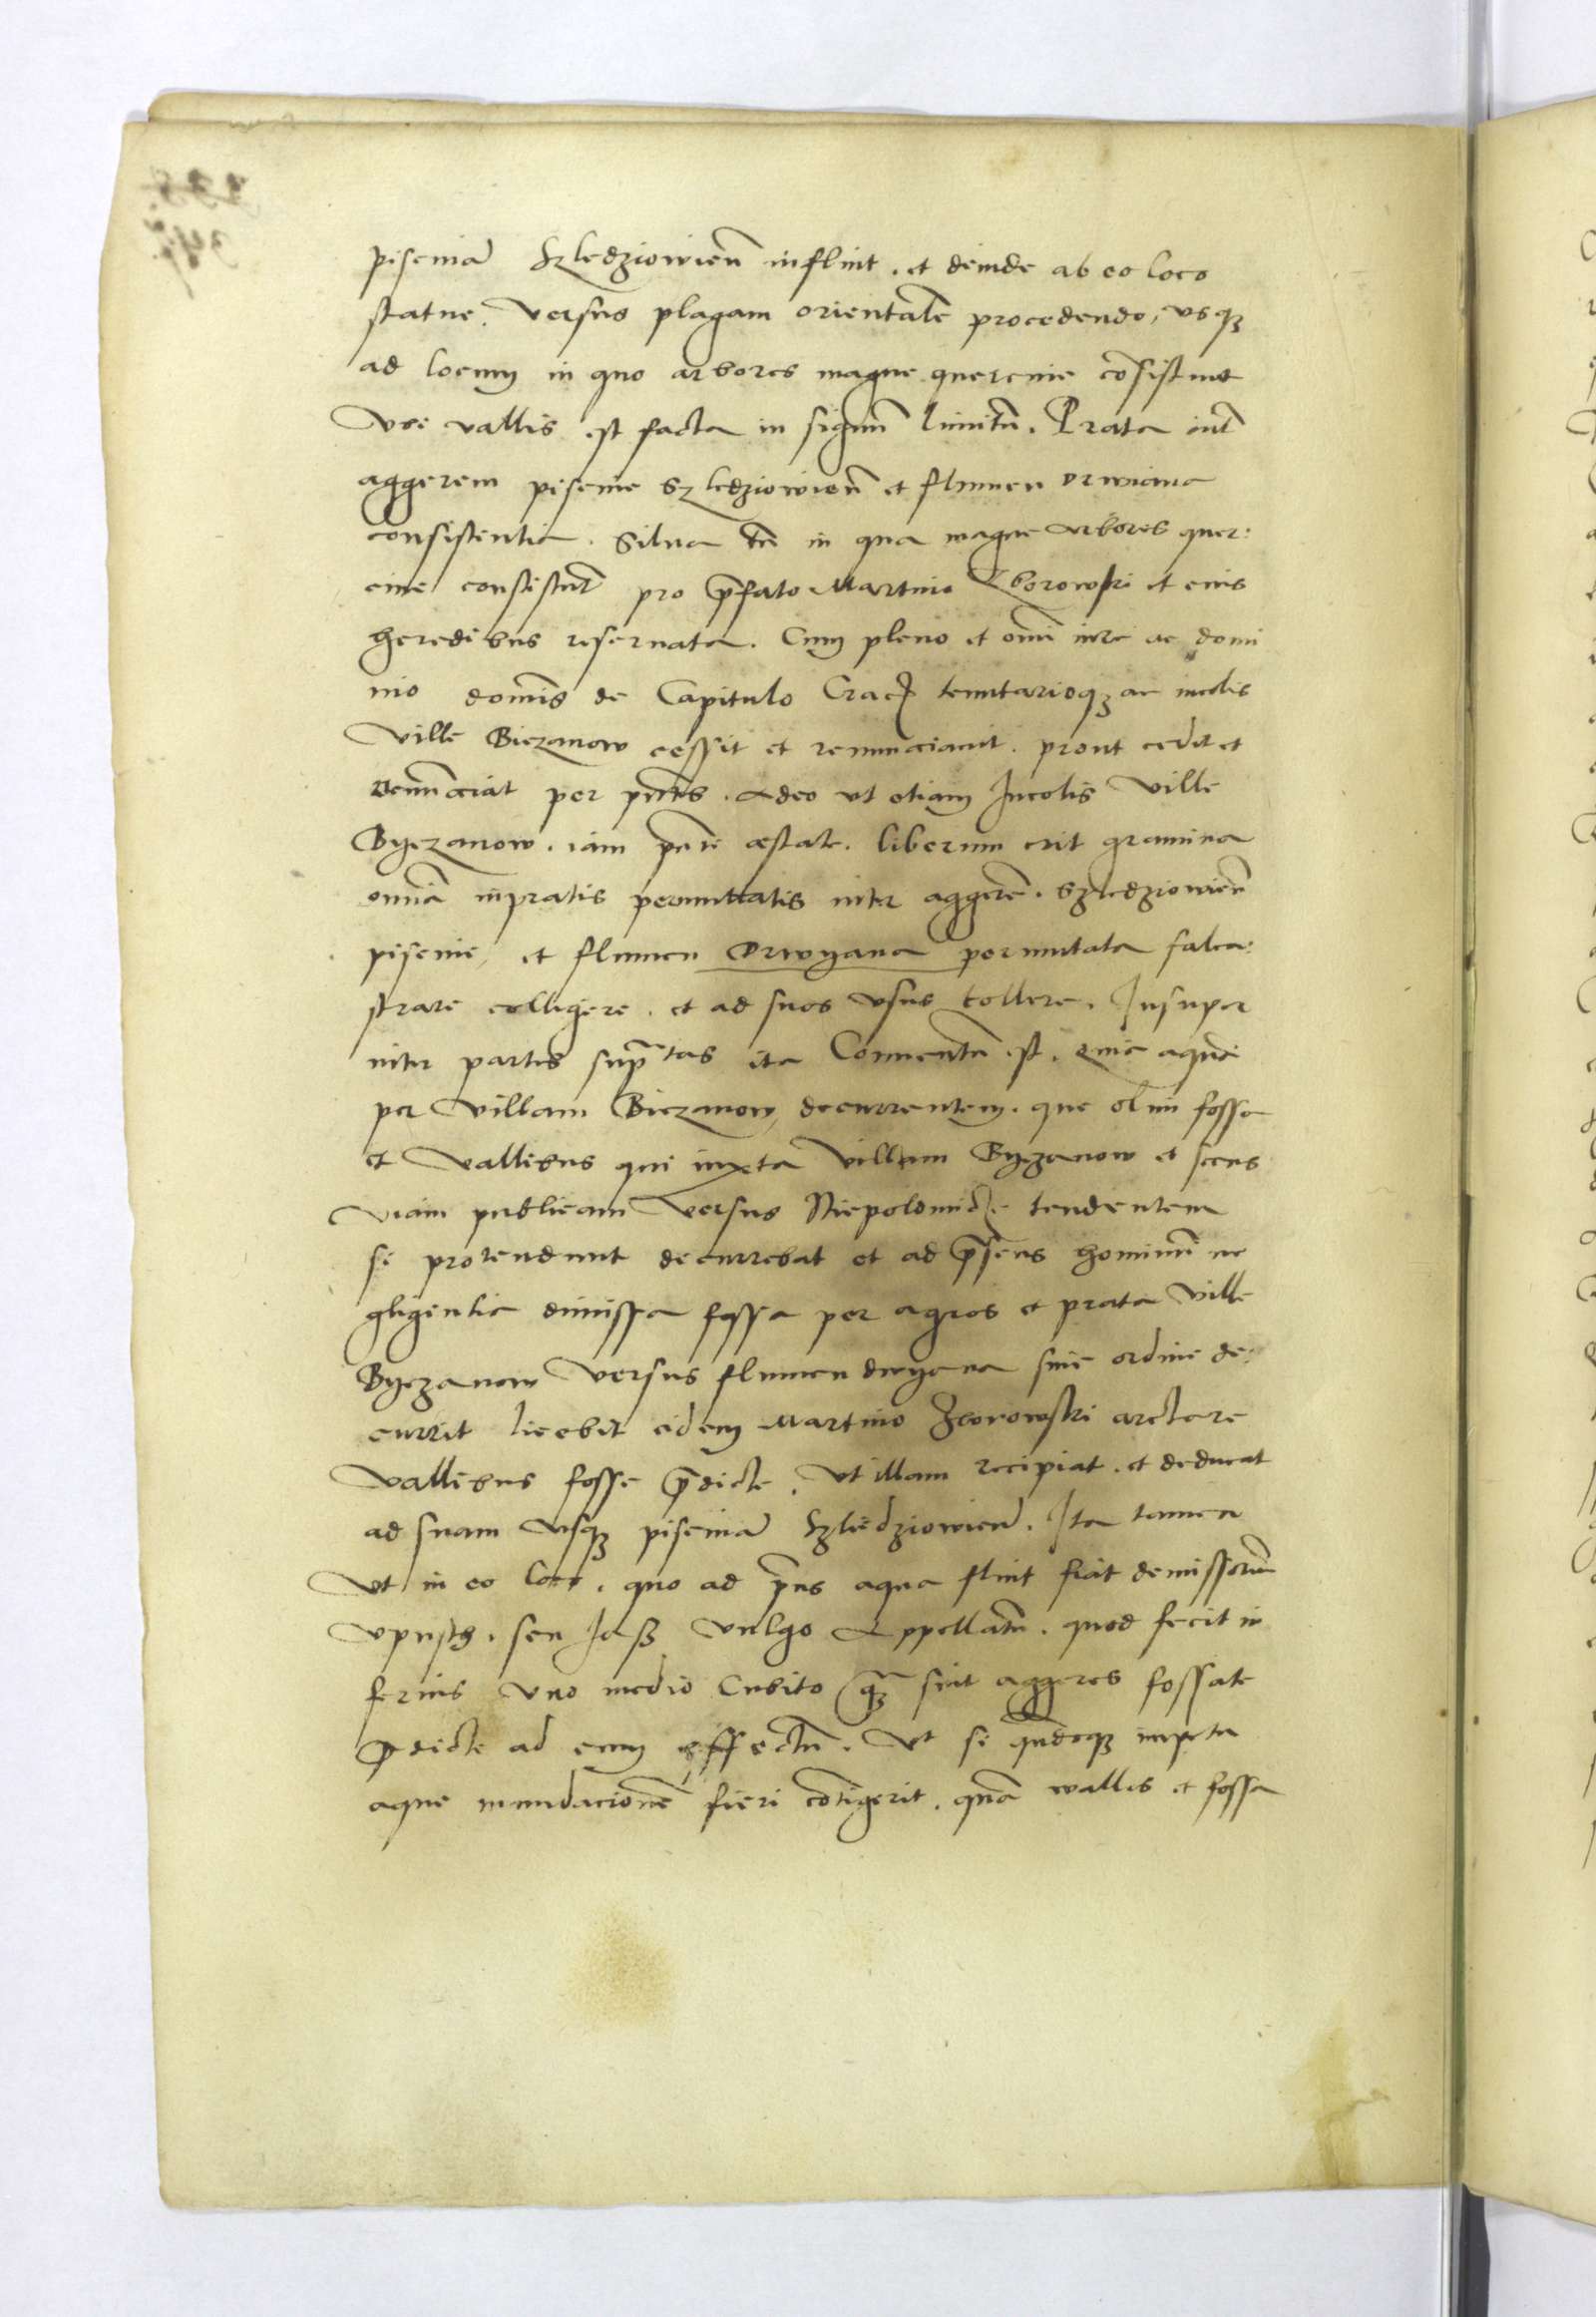 pisciniã Szledziowieñ influit . et deinde ab eo loco
statue . versus plagam orientalẽ procedendo, usqz
ad locum in quo arbores magne quercine cõsistunt
vbi vallis est facta in signũ limitũ . Prata int̃
aggerem piscine Szledziowieñ et flumen Drwiana
consistentia . Silua tñ in qua magne arbores quer:
cine consistũt pro p̃fato Martino Zborowski et eius
heredibus reseruata . Cum pleno et om̃i iure ac domi
nio dom̃is de Capitulo Crac̃ tenutarioqz ac incolis
Ville Biezanow cessit et renunciauit . prout cedit et
renũciat per p̃ntes . Adeo ut etiam Incolis Ville
Byezanow . iam p̃nti æstate . liberum erit gramina
omñia in pratis permuttatis inter aggerẽ . Szledziowieñ
piscine, et flumen Drwyana permutata falca:
strare colligere . et ad suos usus tollere . Insuper
inter partes sup̃tas ita Conuentũ est . quia aquã
per villam Biezanow decurrentem . que olim fossa
et vallibus qui iuxta villam Byezanow et secus
viam publicam versus Niepolomicze tendentem
se protendunt decurrebat et ad p̃sens hominũ ne
gligentia dimissa fossa per agros et prata Ville
Byezanow versus flumen drwyana sine ordine de:
currit licebit eidem Martino Zborowski arctare
vallibus fosse p̃dicte . Vt illam recipiat . et deducat
ad suam usqz pisciniã Szledziowieñ . Ita tamen
Vt in eo loco . quo ad p̃ns aqua fluit fiat demissoriũ
vpusth . seu Iaß vulgo Appellatũ . quod fecit in
ferius vno medio Cubito qz̃ sint aggeres fossate
p̃dicte ad eum effectũ . Vt si quãdoqz
aque inundacionẽ fieri cõtigerit . quã vallis et fossa